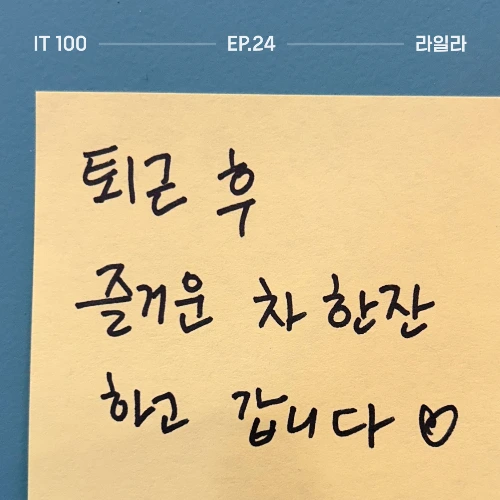 IT 100 EP.24 라일라
퇴근 후
즐거운 차 한잔
하고 갑니다 ♡